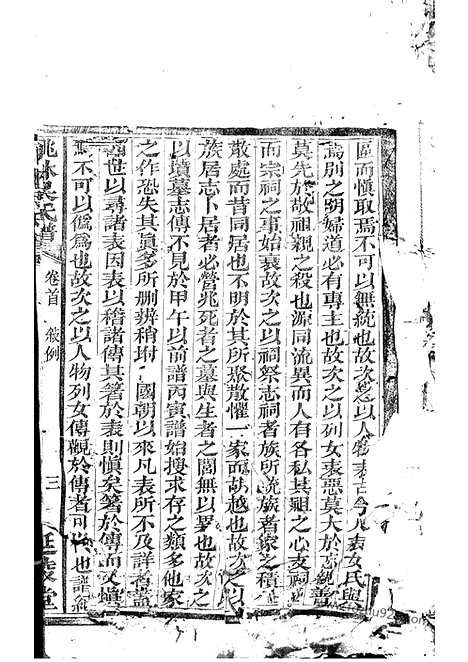 區而慎取焉不可以無統也故次之以人物表古今人表女氏與
焉別之明婦道必有專主也故次之以列女表惡莫大於忘親善
莫先於敬祖親之殺也源同流異而人各私其祖之心支祠
而宗祠之事始衰故次之以祠祭志祠者族所統族者家之積
散處而昔同居也不明於其所聚散懼一家而胡越也故次之以
族居志卜居者必營兆死者之墓與生者之閭無以異也故次之
以墳墓志傳不見於甲午以前譜丙寅譜始搜求存之類多他家
之作恐失其眞多所刪辨稍坿 國朝以來凡表所不及詳者蓋
世以尋諸表因表以稽諸傳其著於表則慎矣著於傳而又慎
焉不可以僞爲也故次之以人物列女傳觀於傳者可以 也譜
姚林吳氏譜
卷首 敘例
三
延陵堂